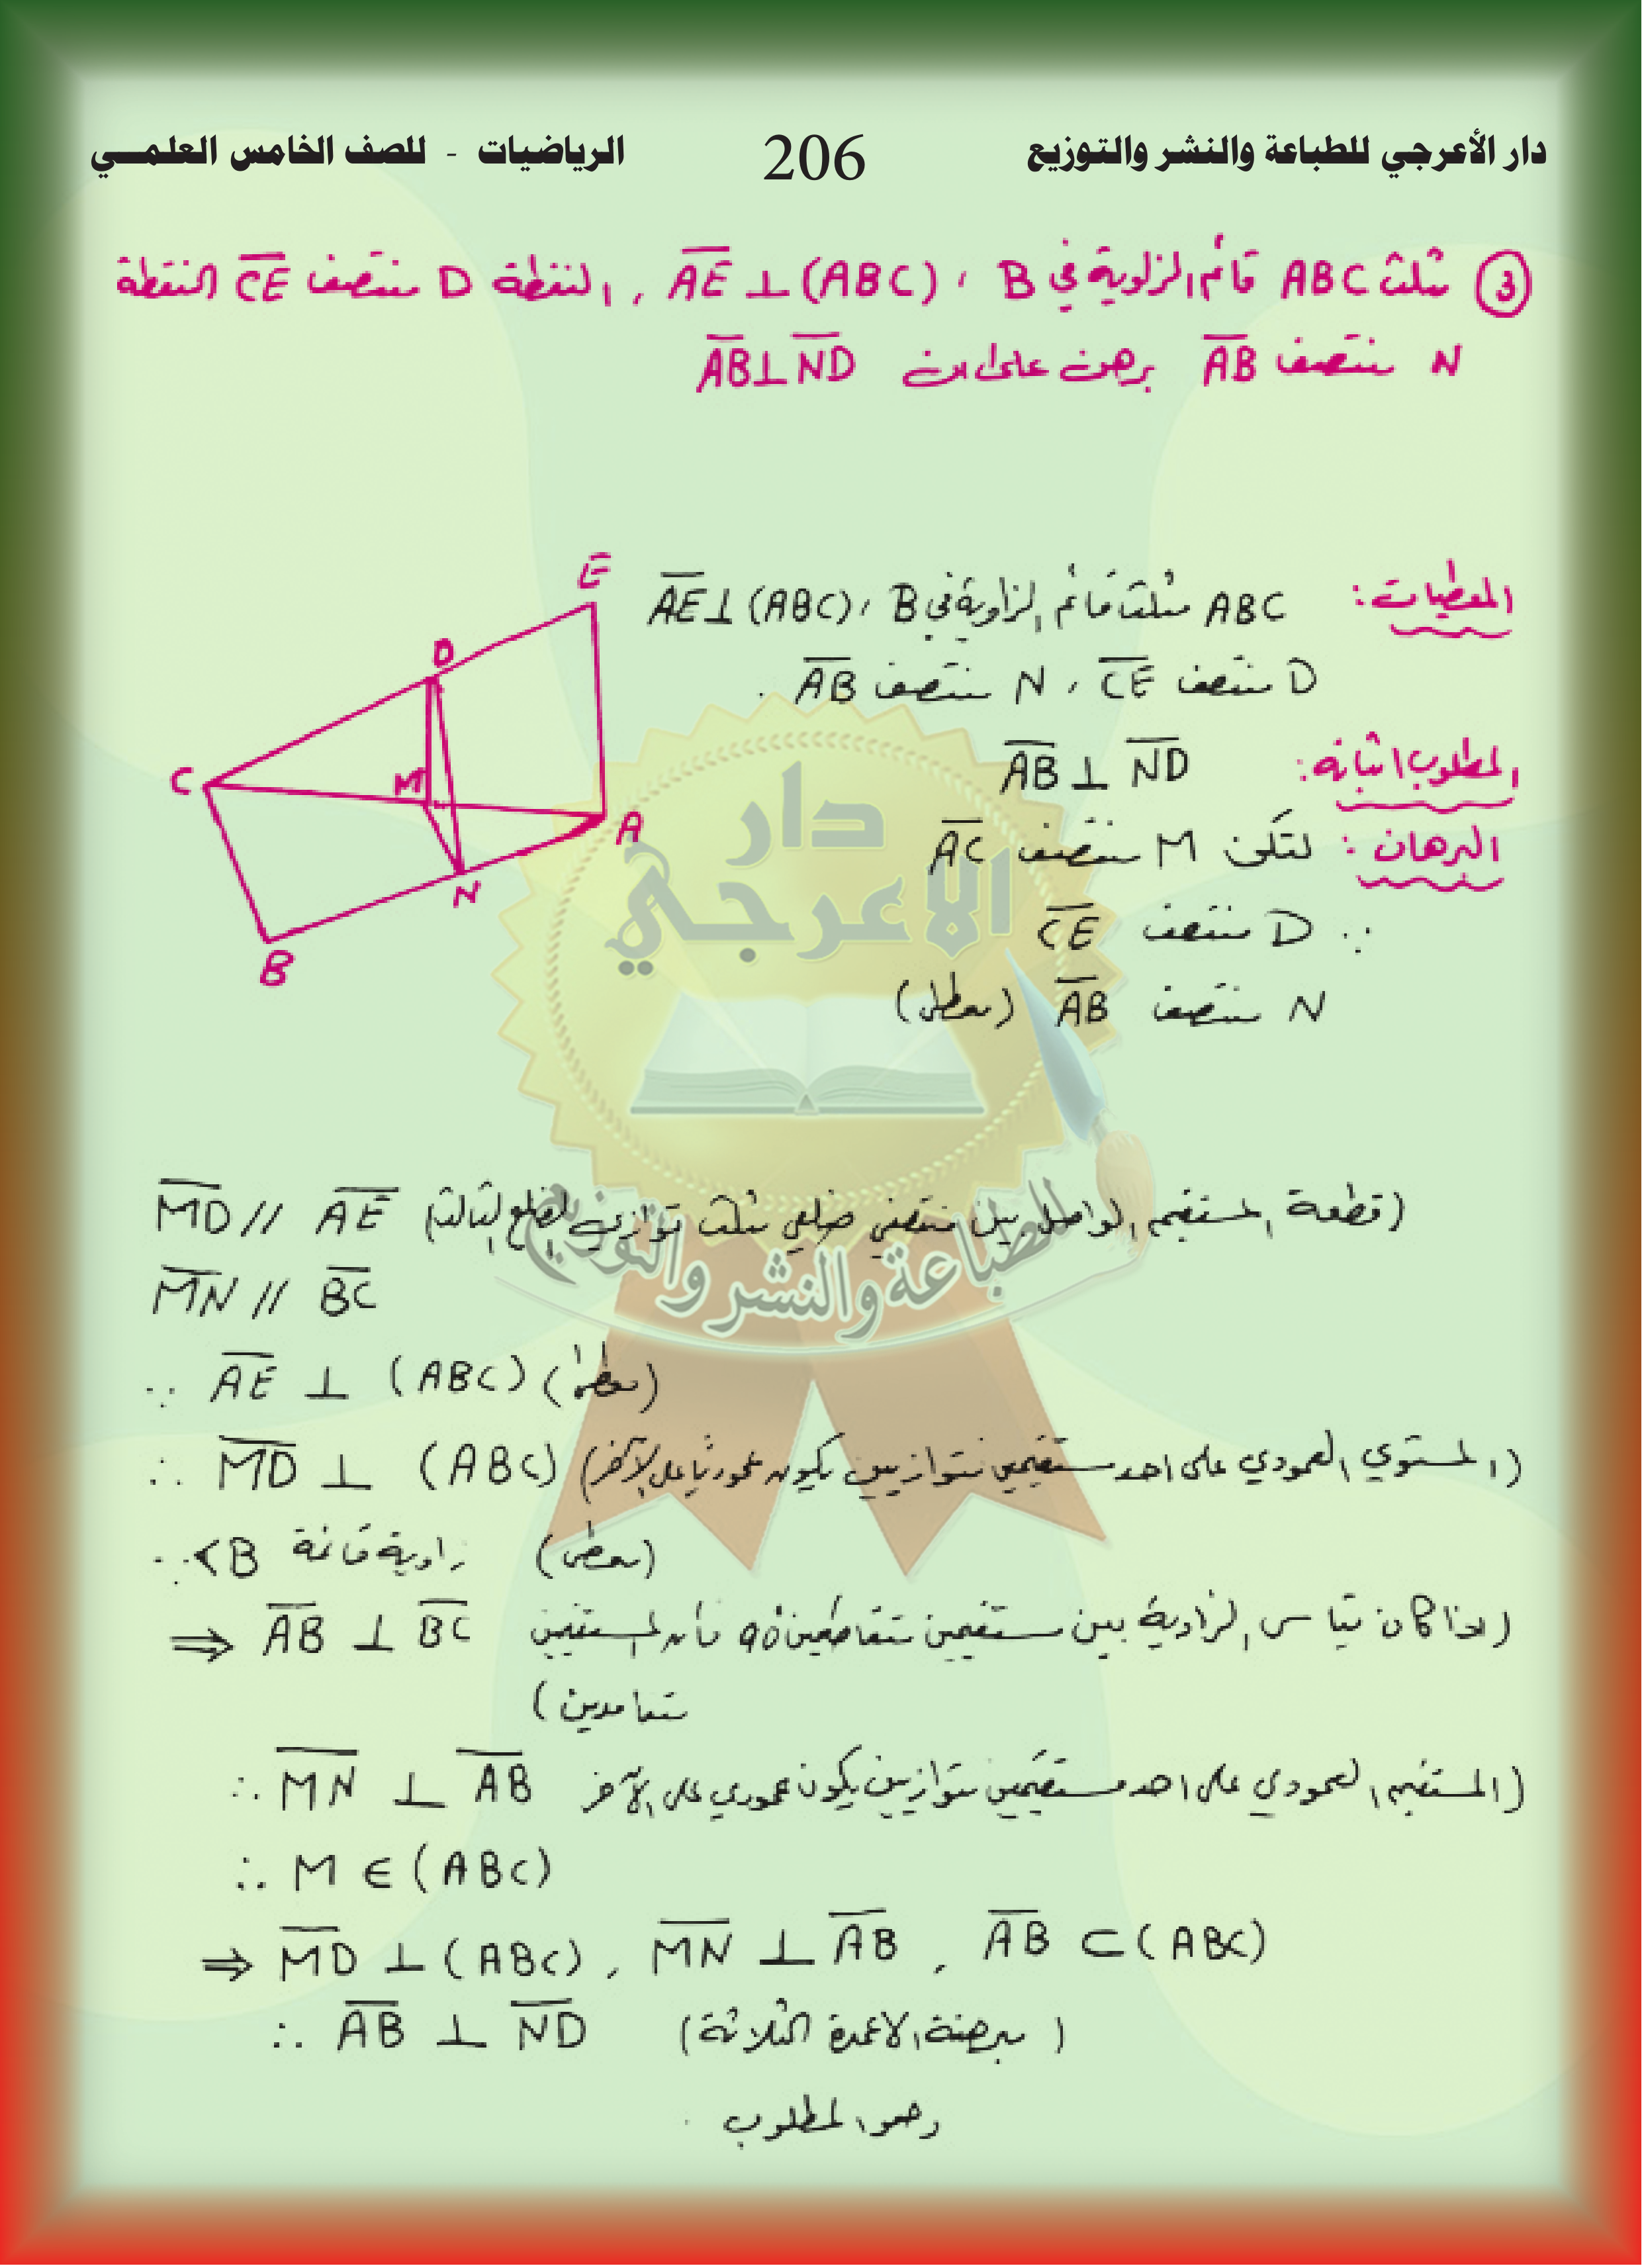 دار الأعرجي للطباعة والنشر والتوزيع 206 الرياضيات - للصف الخامس العلمـــي
③ مثلث ABC قائم الزاوية في B ، AE ⊥ (ABC) ، النقطة D منتصف CE النقطة
N منتصف AB برهن على ان AB ⊥ ND
المعطيات: ABC مثلث قائم الزاوية في B ، AE ⊥ (ABC)
D منتصف CE ، N منتصف AB .
المطلوب اثباته: AB ⊥ ND
البرهان: لتكن M منتصف AC
∵ D منتصف CE
N منتصف AB (معطى)
E
D
C
M
A
N
B
دار
الاعرجي
للطباعة والنشر والتوزيع
MD // AE (قطعة المستقيم الواصل بين منتصفي ضلعي مثلث توازي الضلع الثالث)
MN // BC
∵ AE ⊥ (ABC) (معطى)
∴ MD ⊥ (ABC) (المستوي العمودي على احد مستقيمين متوازيين يكون عموديا على الآخر)
∵ <B زاوية قائمة (معطى)
⇒ AB ⊥ BC (اذا كان قياس الزاوية بين مستقيمين متقاطعين 90° فأن المستقيمين
متعامدين)
∴ MN ⊥ AB (المستقيم العمودي على احد مستقيمين متوازيين يكون عمودي على الآخر)
∴ M ∈ (ABC)
⇒ MD ⊥ (ABC) , MN ⊥ AB , AB ⊂ (ABC)
∴ AB ⊥ ND (مبرهنة الاعمدة الثلاثة)
وهو المطلوب .